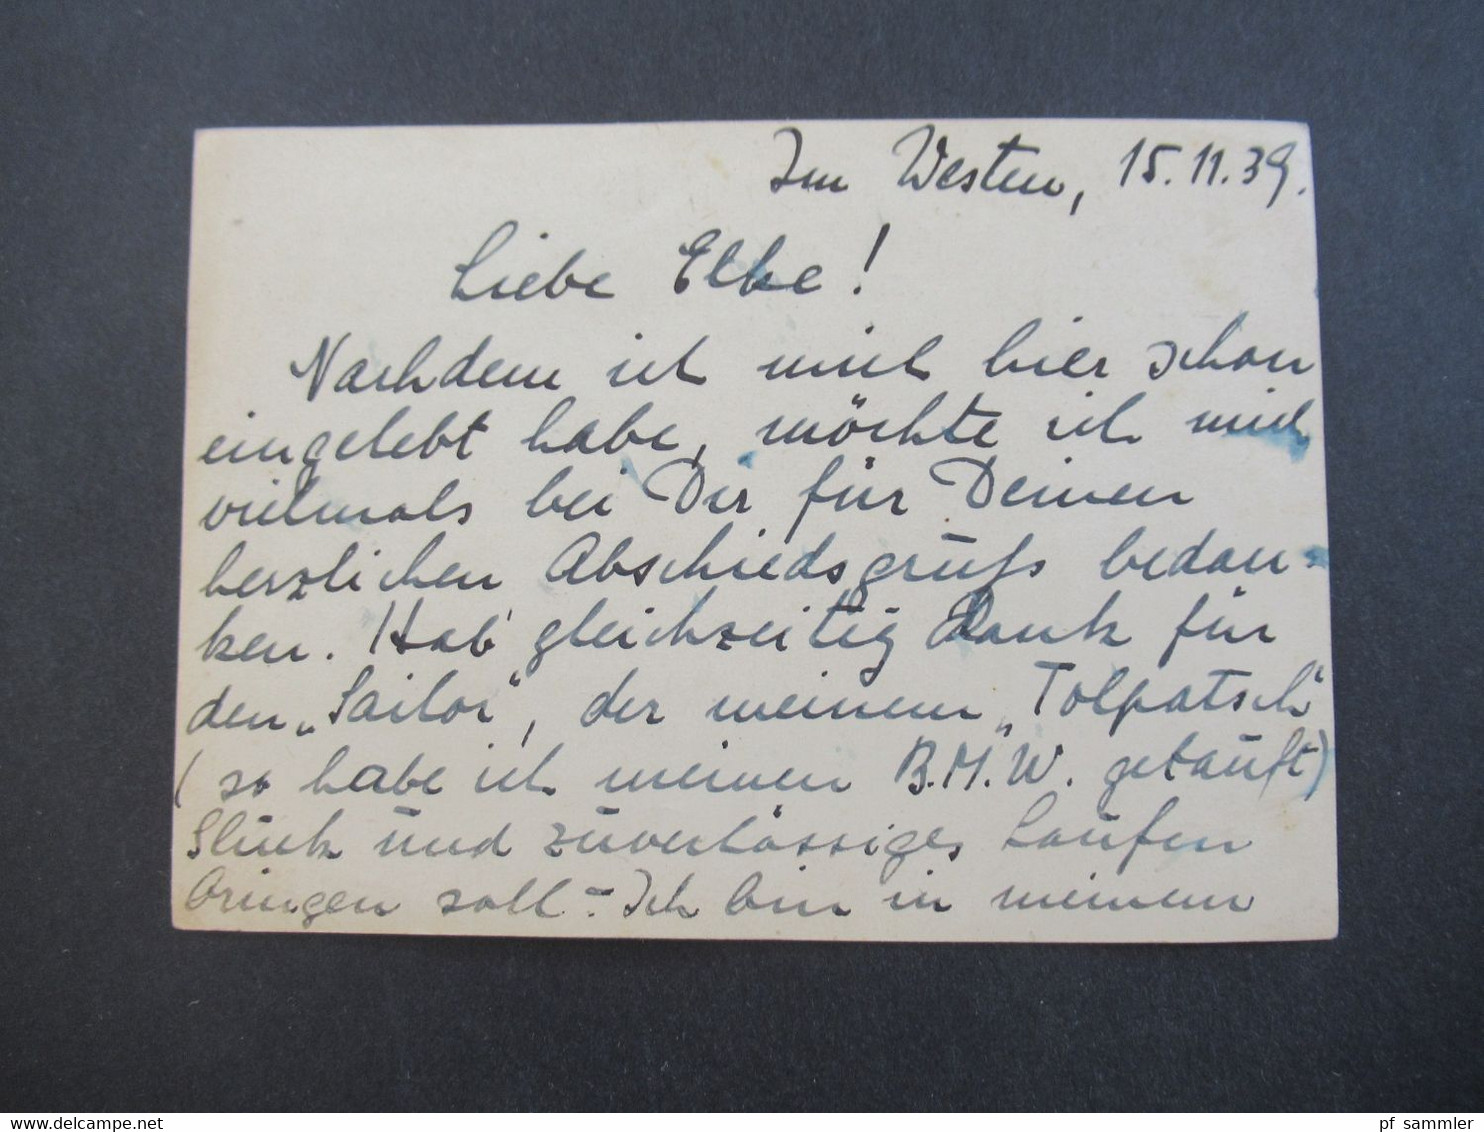 Im Westen, 15.11.39.
Liebe Elke!
Nachdem ich mich hier schon
eingelebt habe, möchte ich mich
vielmals bei Dir für Deinen
herzlichen Abschiedsgruß bedan-
ken. Hab' gleichzeitig Dank für
den „Sailor", der meinem „Tolpatsch"
(so habe ich meinen B.M.W. getauft)
Glück und zuverlässiges Laufen
bringen soll - Ich bin in meinem
www.delcampe.net
pf_sammler